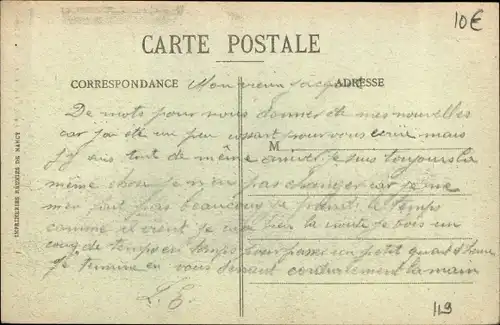 10€
CARTE POSTALE
CORRESPONDANCE Mon vieux ADRESSE
De mots pour vous donner de mes nouvelles
car j'ai été un peu pour vous ecrire mais
M
j'y suis tout de même je suis toujours la
même chose je n'ai pas changer car je ne
m'en fait pas beaucoup je prend le temps
comme il vient je bien la route je bois un
coup de temps en temps pour passer un petit quart d'heure
Je termine en vous serrant cordialement la main
L. E.
119
IMPRIMERIES RÉUNIES DE NANCY